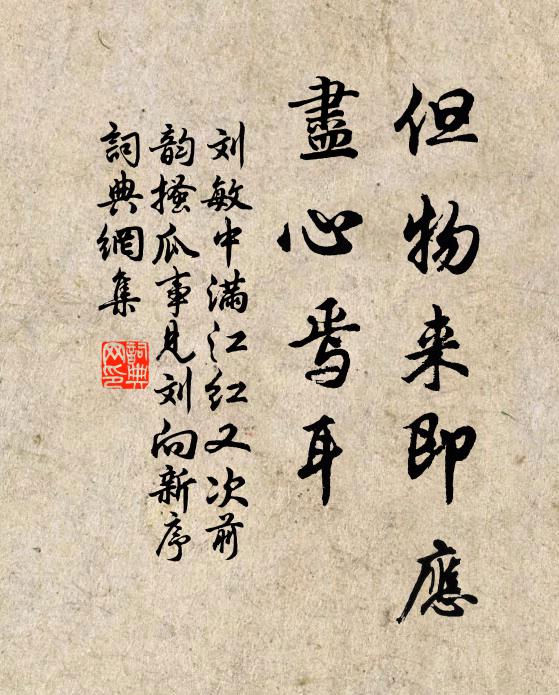 但物来即應
盡心焉耳
刘敏中满江红又次前
韵搔瓜事见刘向新序
詞典網集
詞典
网印